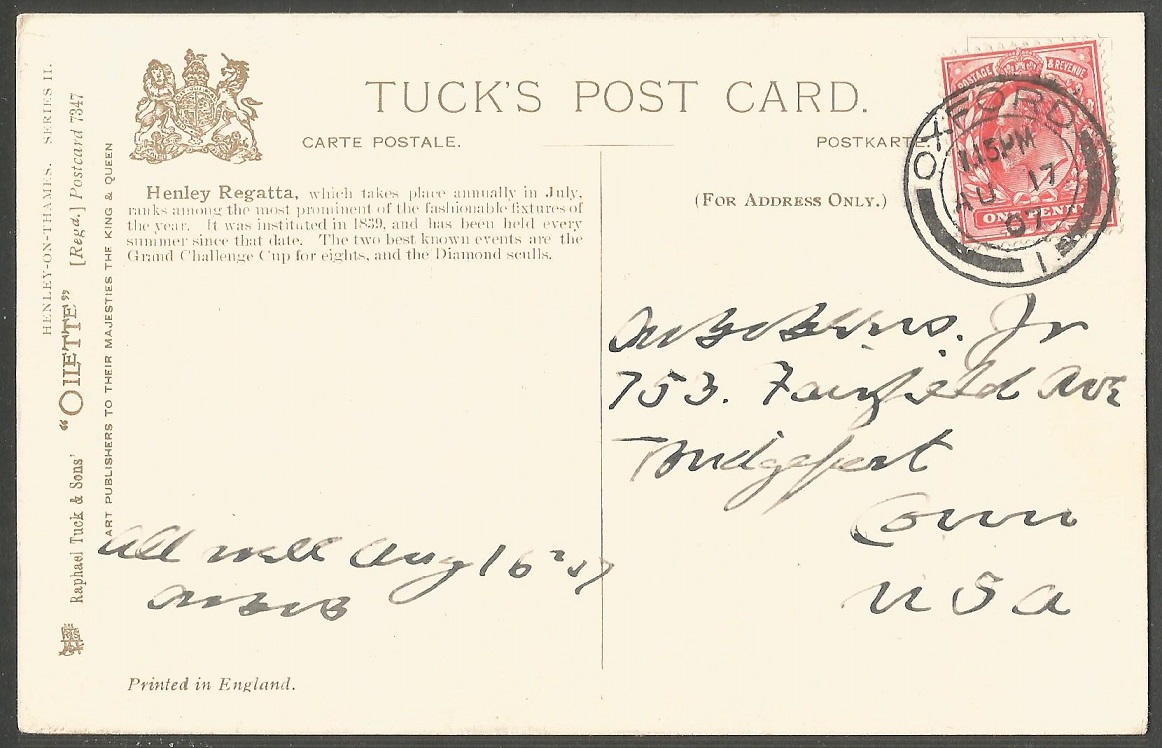 TUCK'S POST CARD.
CARTE POSTALE.
POSTKARTE.
(FOR ADDRESS ONLY.)
Henley Regatta, which takes place annually in July,
ranks among the most prominent of the fashionable fixtures of
the year. It was instituted in 1839, and has been held every
summer since that date. The two best known events are the
Grand Challenge Cup for eights, and the Diamond sculls.
HENLEY-ON-THAMES. SERIES II.
Raphael Tuck & Sons' "OILETTE" [Regd.] Postcard 7347
ART PUBLISHERS TO THEIR MAJESTIES THE KING & QUEEN
POSTAGE & REVENUE
ONE PENNY
OXFORD
1.15PM
AU 17
07
Jr
753. Fairfield Ave
Bridgeport
Conn
USA
All well Aug 16
Printed in England.